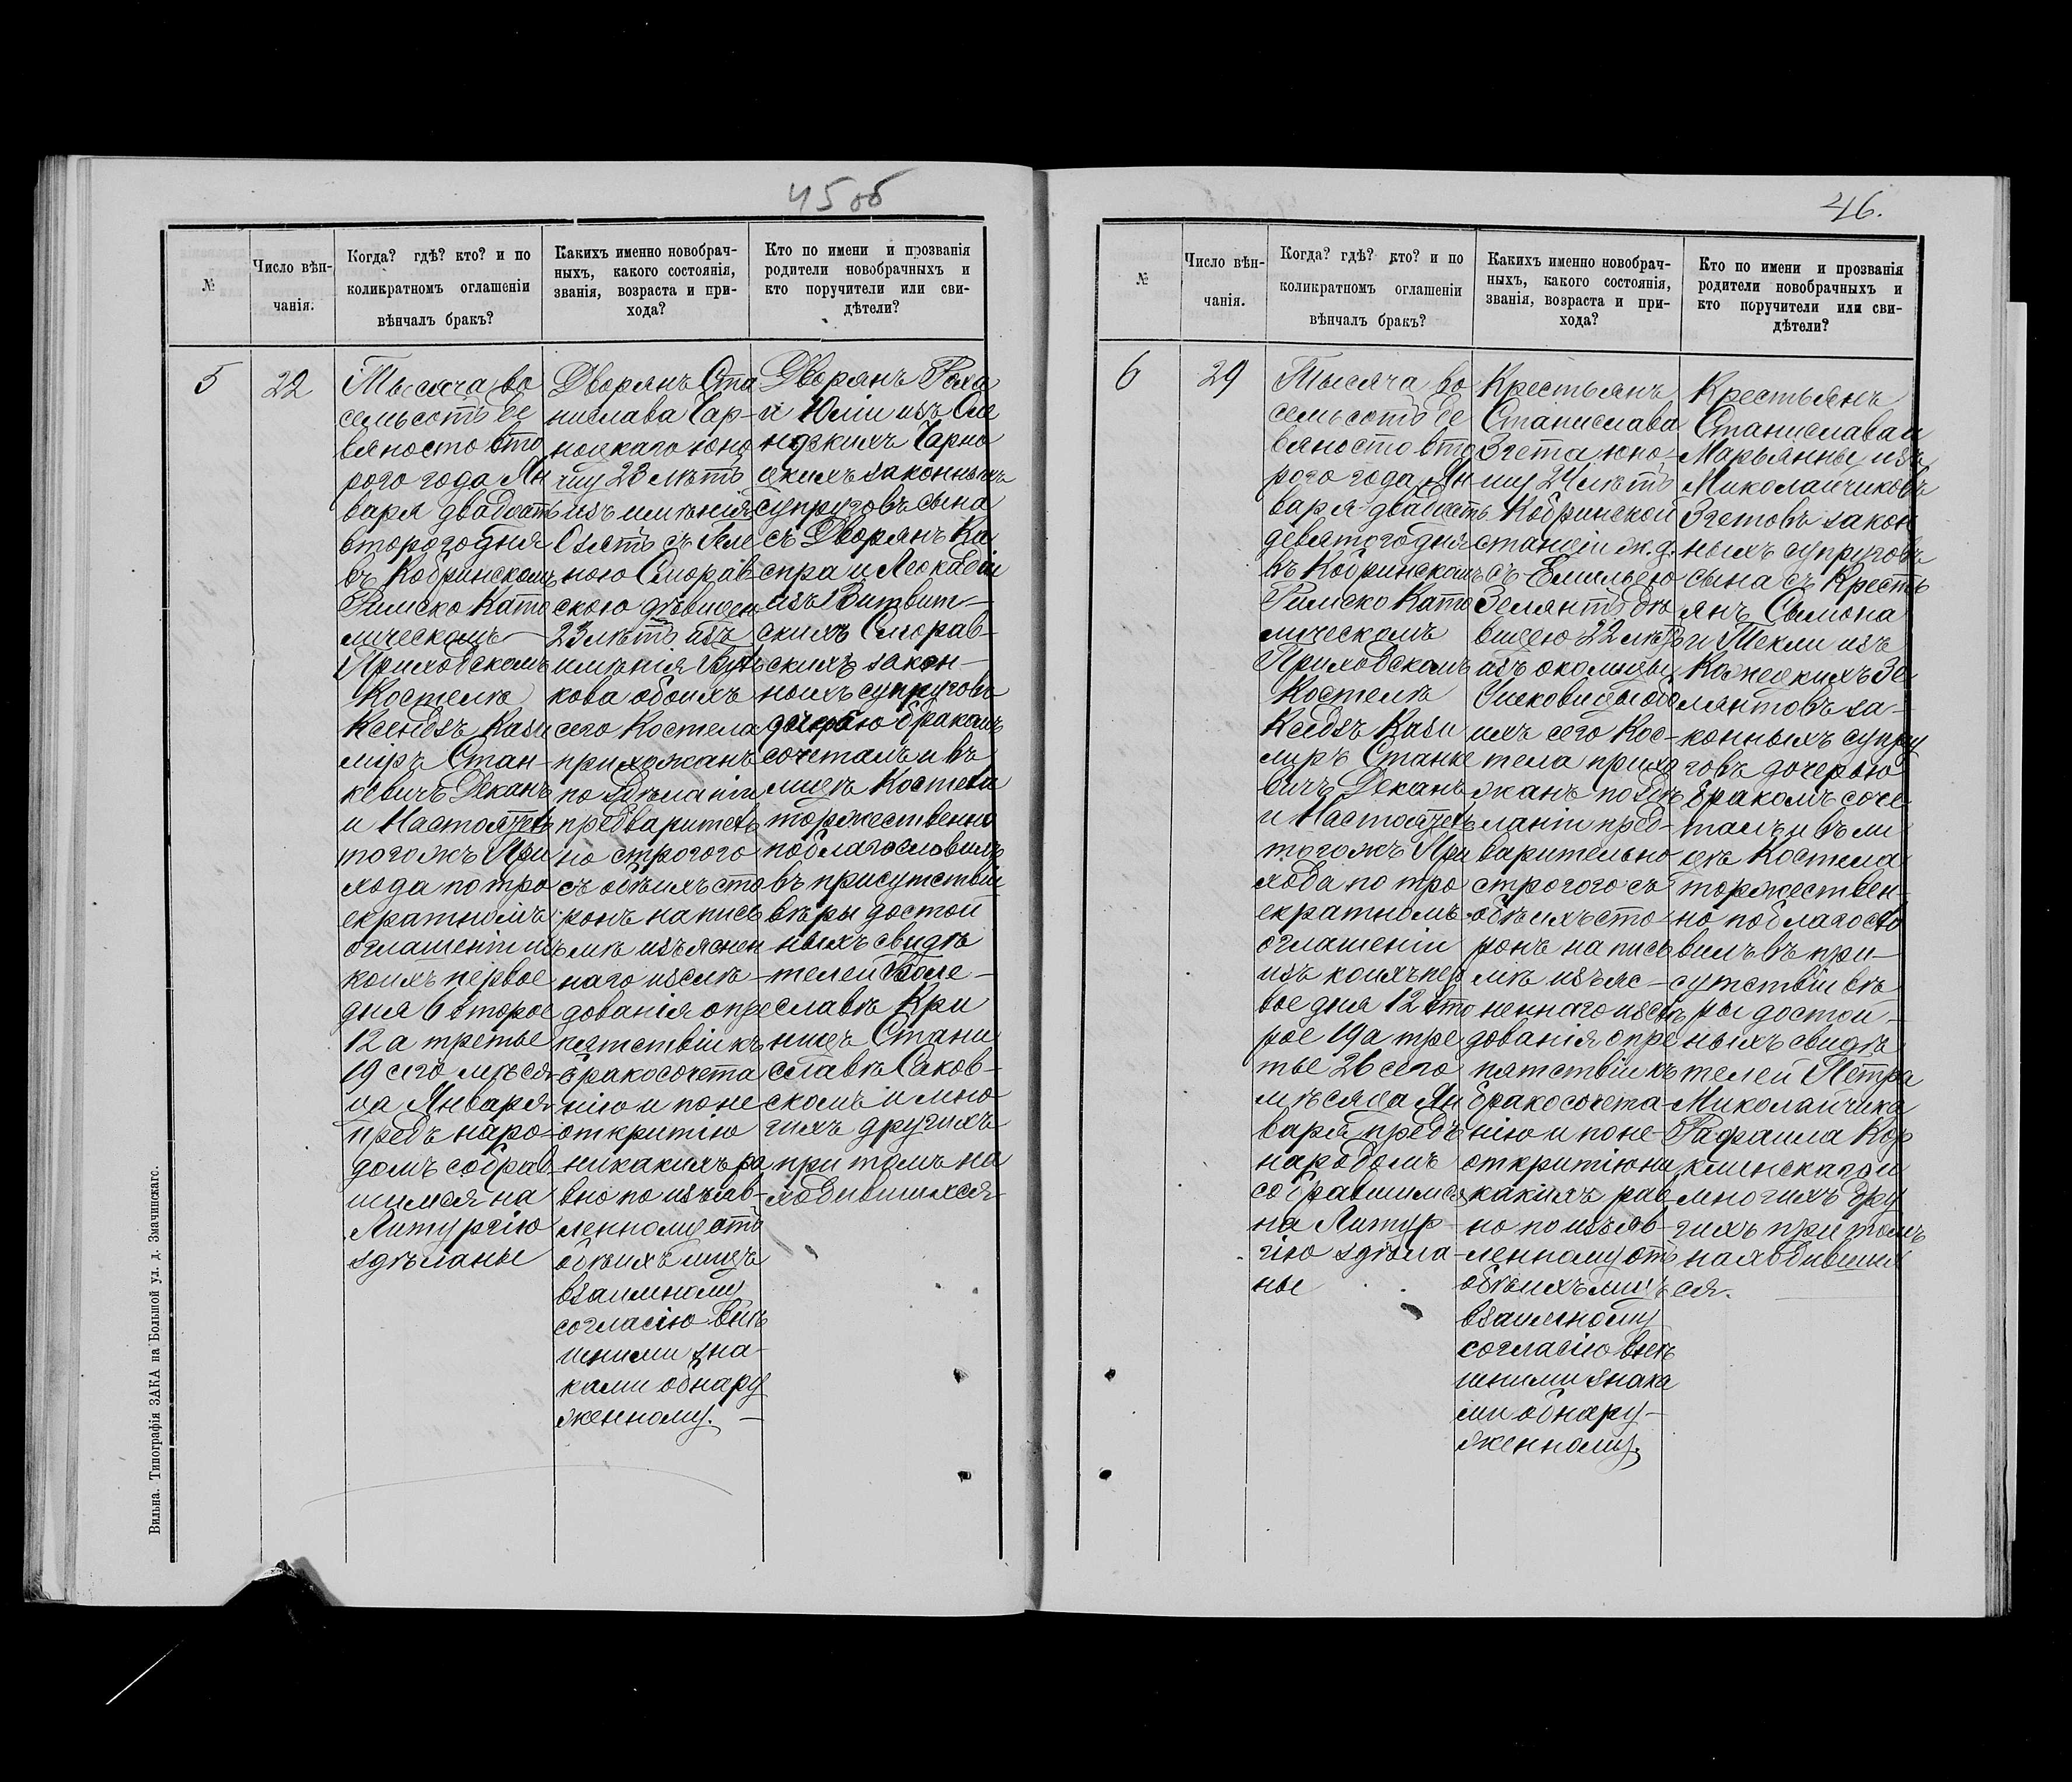 45 об
№
Число вѣн-
чанія.
Когда? гдѣ? кто? и по
коликратномъ оглашеніи
вѣнчалъ бракъ?
Какихъ именно новобрач-
ныхъ, какого состоянія,
званія, возраста и при-
хода?
Кто по имени и прозванія
родители новобрачныхъ и
кто поручители или сви-
дѣтели?
5
22
Тысяча во
семьсотъ де
вяносто вто
рого года Ян
варя двадцать
второго дня
въ Кобринскомъ
Римско Като
лическомъ
Приходскомъ
Костелѣ
Ксендзъ Кази
міръ Стан-
кевичъ Деканъ
и Настоятель
тогожъ При
хода по тро
екратномъ
оглашеніи изъ
коихъ первое
дня 6 второе
12 а третье
19 сего мѣся-
ца Января
предъ наро-
домъ собрав
шимся на
Литургію
здѣланы
Дворянъ Ста
нислава Чар-
ноцкаго юно
шу 23 лѣтъ
изъ имѣнія
съ
ною Сморав-
скою дѣвицею
23 лѣтъ изъ
имѣнія
кова обоихъ
сего Костела
прихожанъ
по здѣланіи
предваритель
но строгого
съ обѣихъ сто
ронъ на пись
мѣ изъяснен
наго изслѣ-
дованія опре
пятствіи къ
бракосочета
нію и по не
открытію
никакихъ ра
вно по изъяв-
ленному отъ
обѣихъ лицъ
взаимному
согласію внѣ
шними зна-
ками обнару
женному. —
Дворянъ Роха
и Юліи изъ Оле
Чарно
цкихъ законныхъ
супруговъ сына
съ Дворянъ Ка
спра и Леокадіи
изъ Витвит-
скихъ Сморав-
скихъ закон-
ныхъ супруговъ
дочерью бракомъ
сочеталъ и въ
лицѣ Костела
торжественно
поблагословилъ
въ присутствіи
вѣры достой
ныхъ свидѣ
телей Боле-
славѣ Кри
ницѣ Стани
славѣ Саков-
скомъ и мно
гихъ другихъ
при томъ на
ходившихся
Вильна. Типографія ЗАКА на Большой ул. д. Змачинскаго.
46.
№
Число вѣн-
чанія.
Когда? гдѣ? кто? и по
коликратномъ оглашеніи
вѣнчалъ бракъ?
Какихъ именно новобрач-
ныхъ, какого состоянія,
званія, возраста и при-
хода?
Кто по имени и прозванія
родители новобрачныхъ и
кто поручители или сви-
дѣтели?
6
29
Тысяча во
семьсотъ де
вяносто вто
рого года Ян
варя двадцать
девятого дня
въ Кобринскомъ
Римско Като
лическомъ
Приходскомъ
Костелѣ
Ксендзъ Кази
миръ Станке
вичъ Деканъ
и Настоятель
тогожъ При
хода по тро
екратномъ
оглашеніи
изъ коихъ пер
вое дня 12 вто
рое 19 а тре
тье 26 сего
мѣсяца Ян
варя предъ
народомъ
собравшимся
на Литур-
гію здѣла
ны
Крестьянъ
Станислава
Згета юно-
шу 24 лѣтъ
Кобринской
станціи ж. д.
съ Емильею
Земянтъ дѣ
вицею 22 лѣтъ
изъ околицы
обо
ихъ сего Кос-
тела прихо
жанъ по здѣ
ланіи пред-
варительно
строгого съ
обѣихъ сто-
ронъ на пись
мѣ изъяс-
неннаго изслѣ
дованія опре
пятствіи къ
бракосочета-
нію и по не-
открытію ни
какихъ рав
но по изъяв-
ленному отъ
обѣихъ лицъ
взаимному
согласію внѣ
шними знака
ми обнару-
женному.
Крестьянъ
Станислава и
Марьянны изъ
Миколайчиковъ
Згетовъ закон
ныхъ супруговъ
сына съ Кресть
янъ Сымона
и Текли изъ
Зе
мянтовъ за-
конныхъ супру
говъ дочерью
бракомъ соче
талъ и въ ли
цѣ Костела
торжествен-
но поблагосло
вилъ въ при-
сутствіи вѣ
ры достой-
ныхъ свидѣ
телей Петра
Миколайчика
Рафаила Кор
клинскаго и
многихъ дру
гихъ при томъ
находивших
ся.